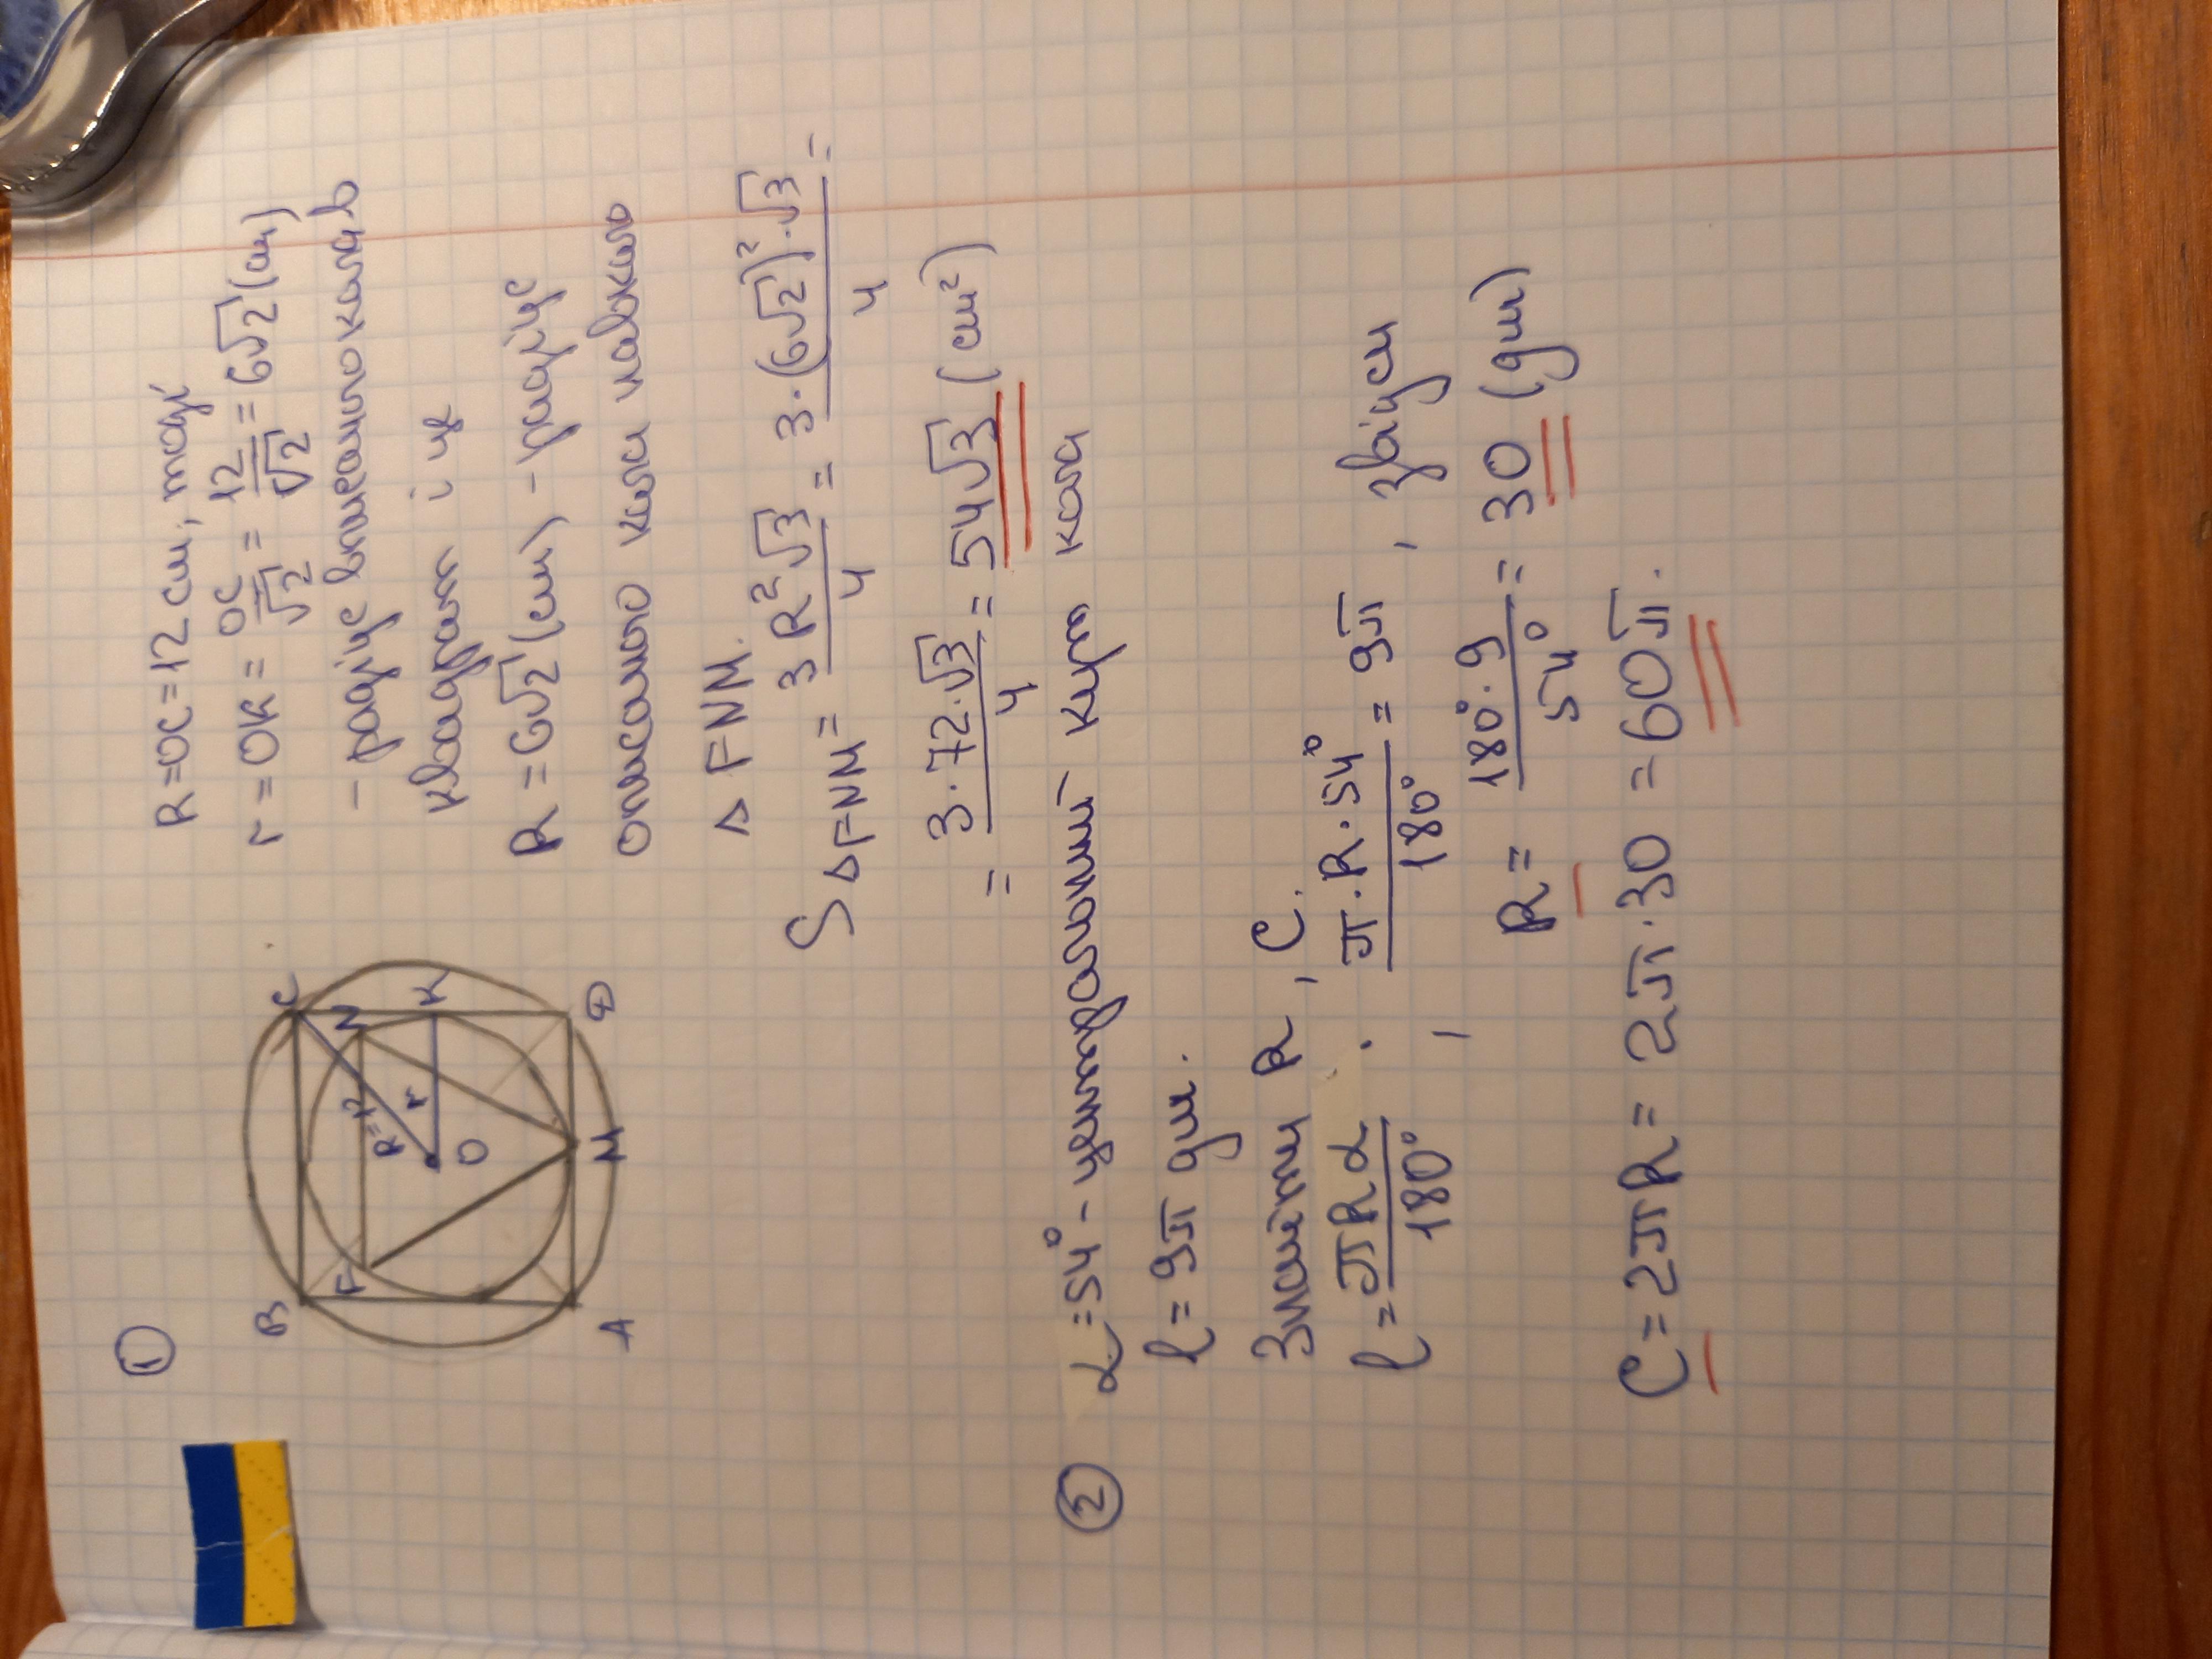 ①
B
C
F
N
R=12
r
K
O
A
M
D
R=OC=12 см, тоді
r=OK= OC/√2 = 12/√2 = 6√2 (см)
- радіус вписаного кола в
квадрат і це
R=6√2 (см) - радіус
описаного кола навколо
△ FNM.
S△FNM = 3R²√3/4 = 3·(6√2)²·√3/4 =
= 3·72·√3/4 = 54√3 (см²)
② α=54° - центральний кут кола
l=9π дм.
Знайти R, C.
l= πRα/180°, π·R·54°/180° = 9π, звідси
R= 180°·9/54° = 30 (дм)
C=2πR= 2π·30 =60π.